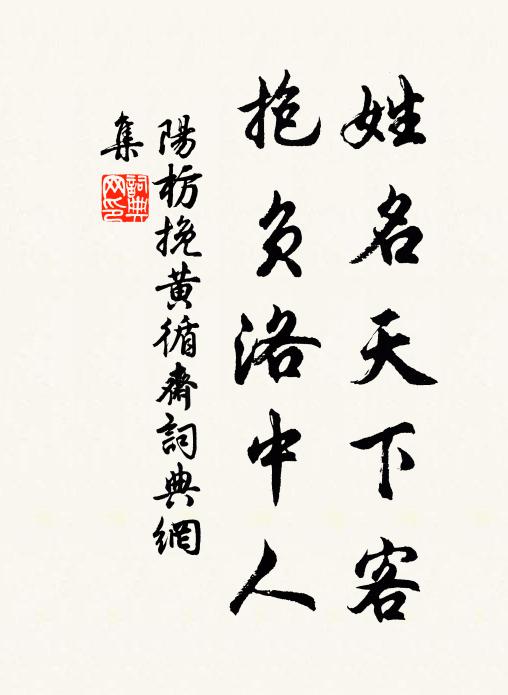 姓名天下客
抱负洛中人
陽枋挽黄循齋詞典網
集
詞典网印